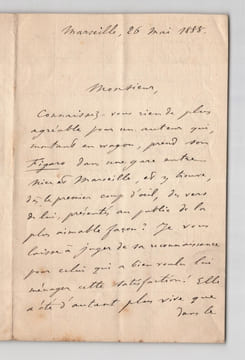 Marseille, 26 mai 1888.
Monsieur,
Connaissez-vous rien de plus
agréable pour un auteur qui,
montant en wagon, prend son
Figaro dans une gare entre
Nice et Marseille, et y trouve,
dès le premier coup d'œil, des vers
de lui, présentés au public de la
plus aimable façon ? Je vous
laisse à juger de sa reconnaissance
pour celui qui a bien voulu lui
ménager cette satisfaction ! Elle
a été d'autant plus vive que
dans le